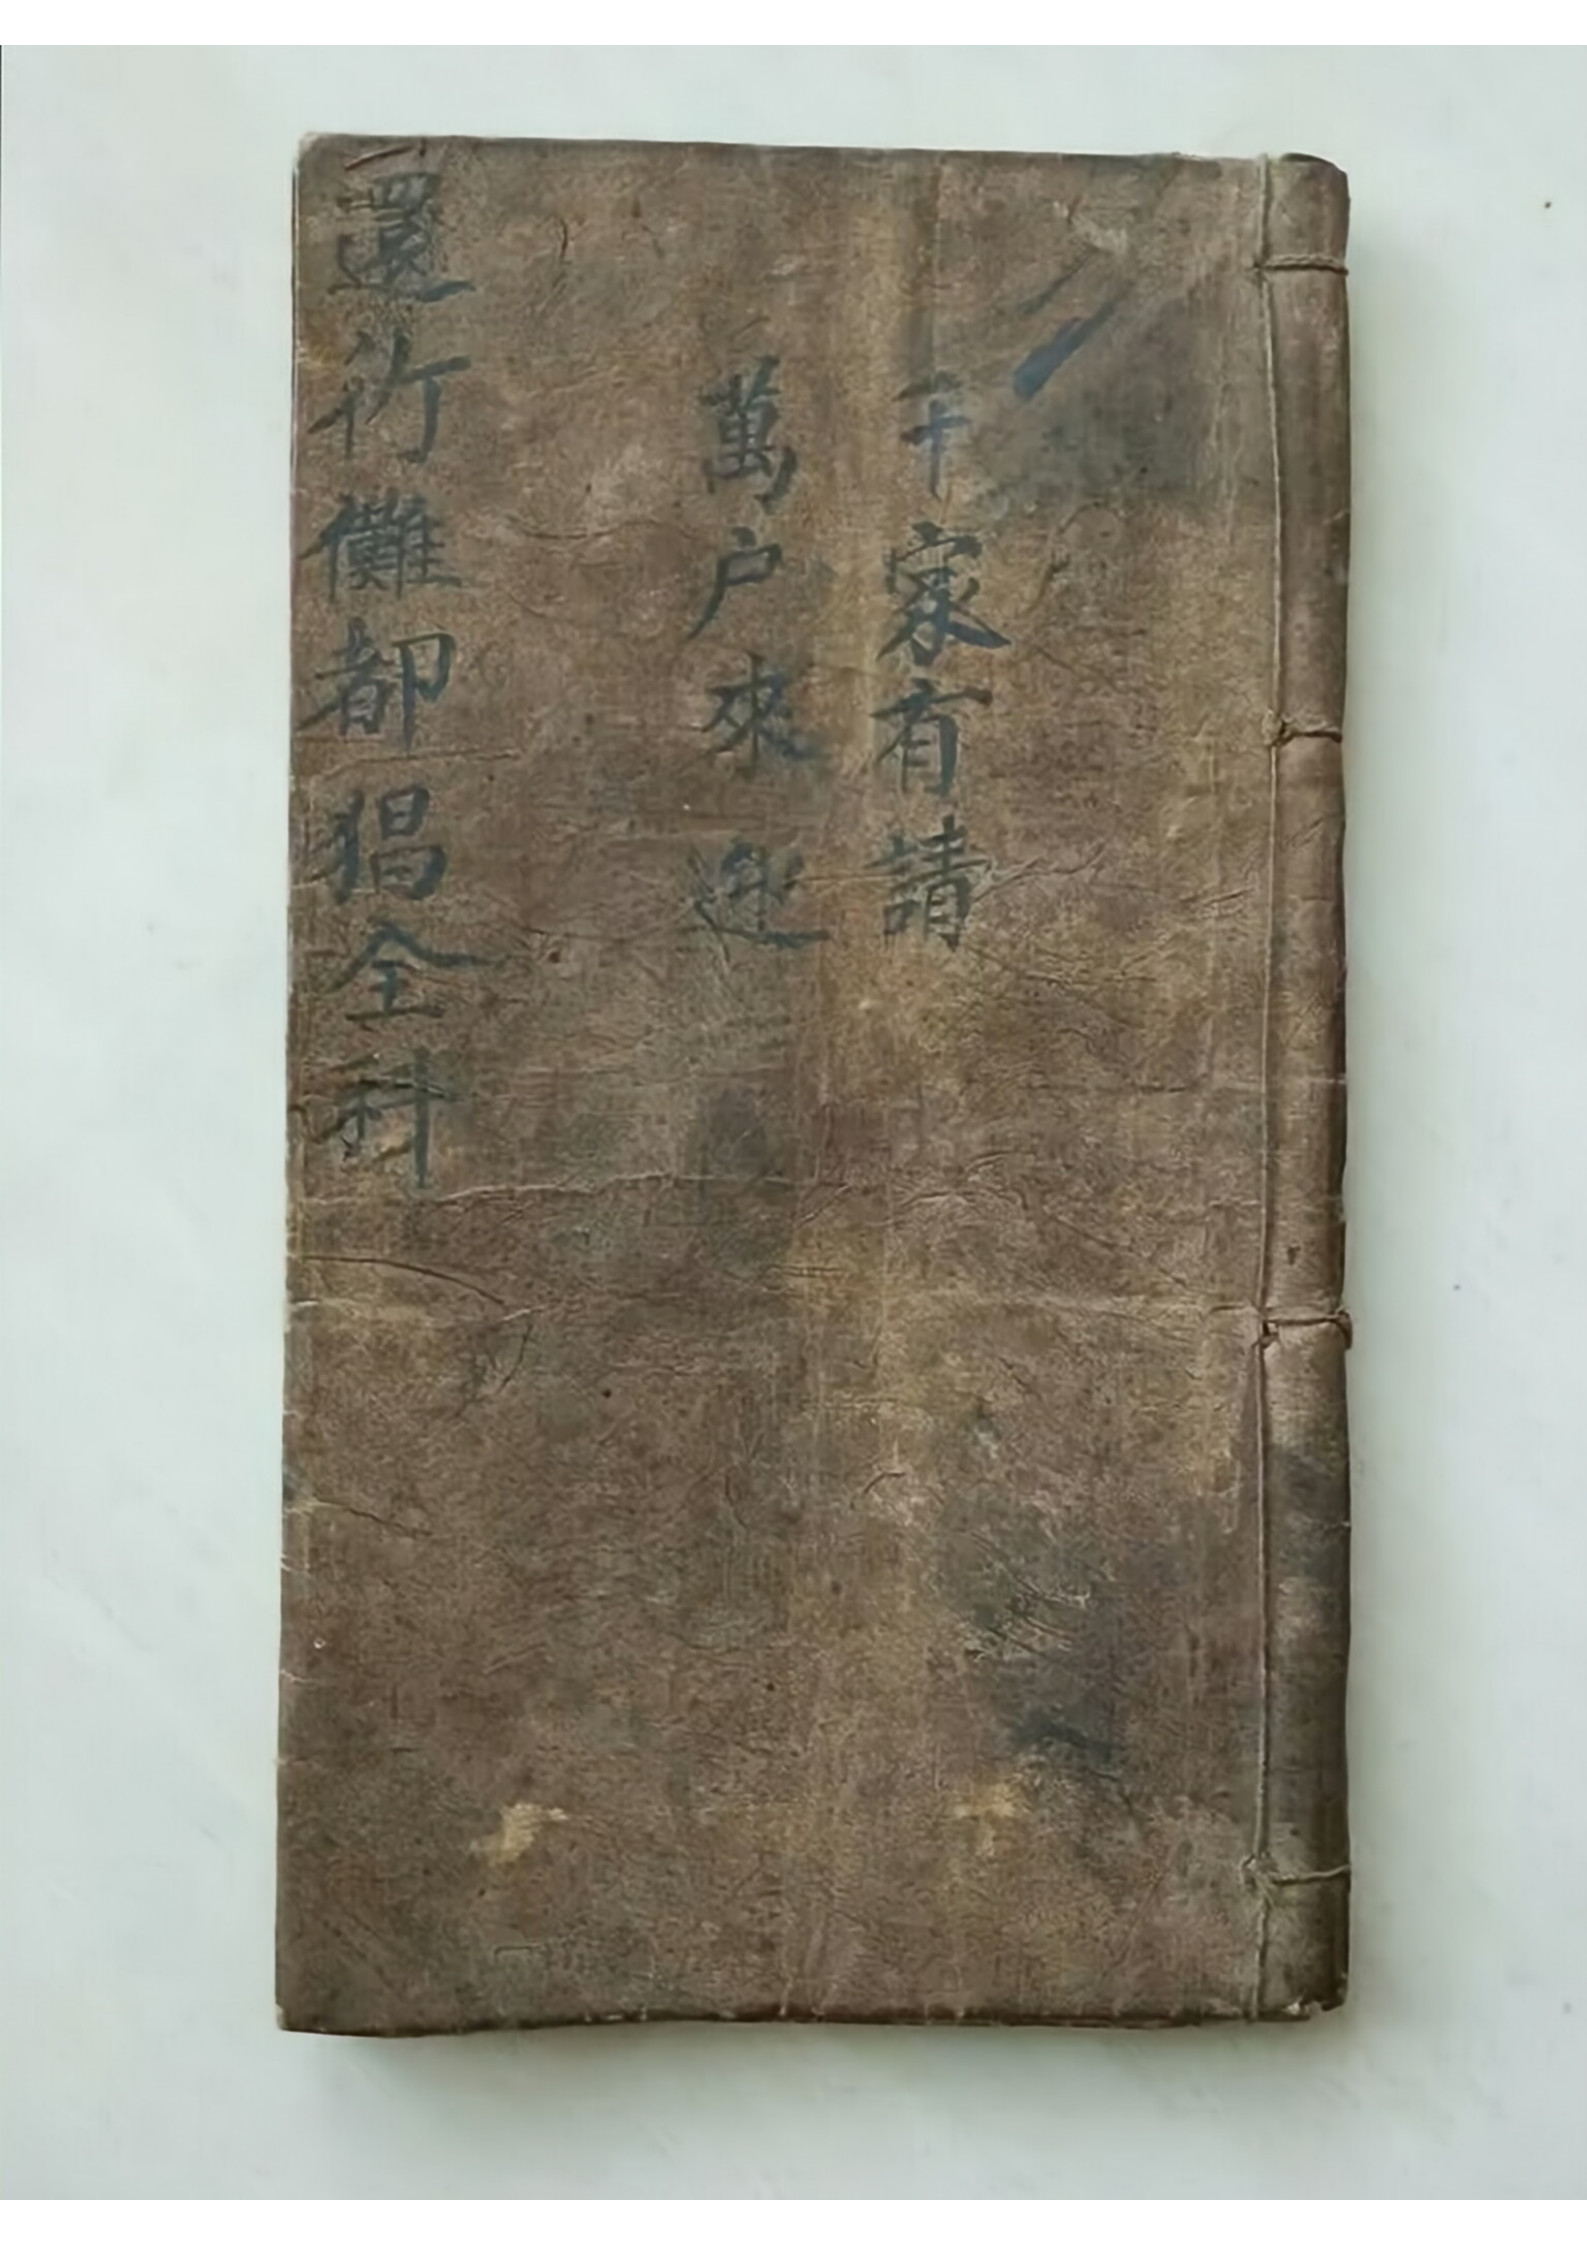 千家有請
萬户來迎
還竹儺都猖全科